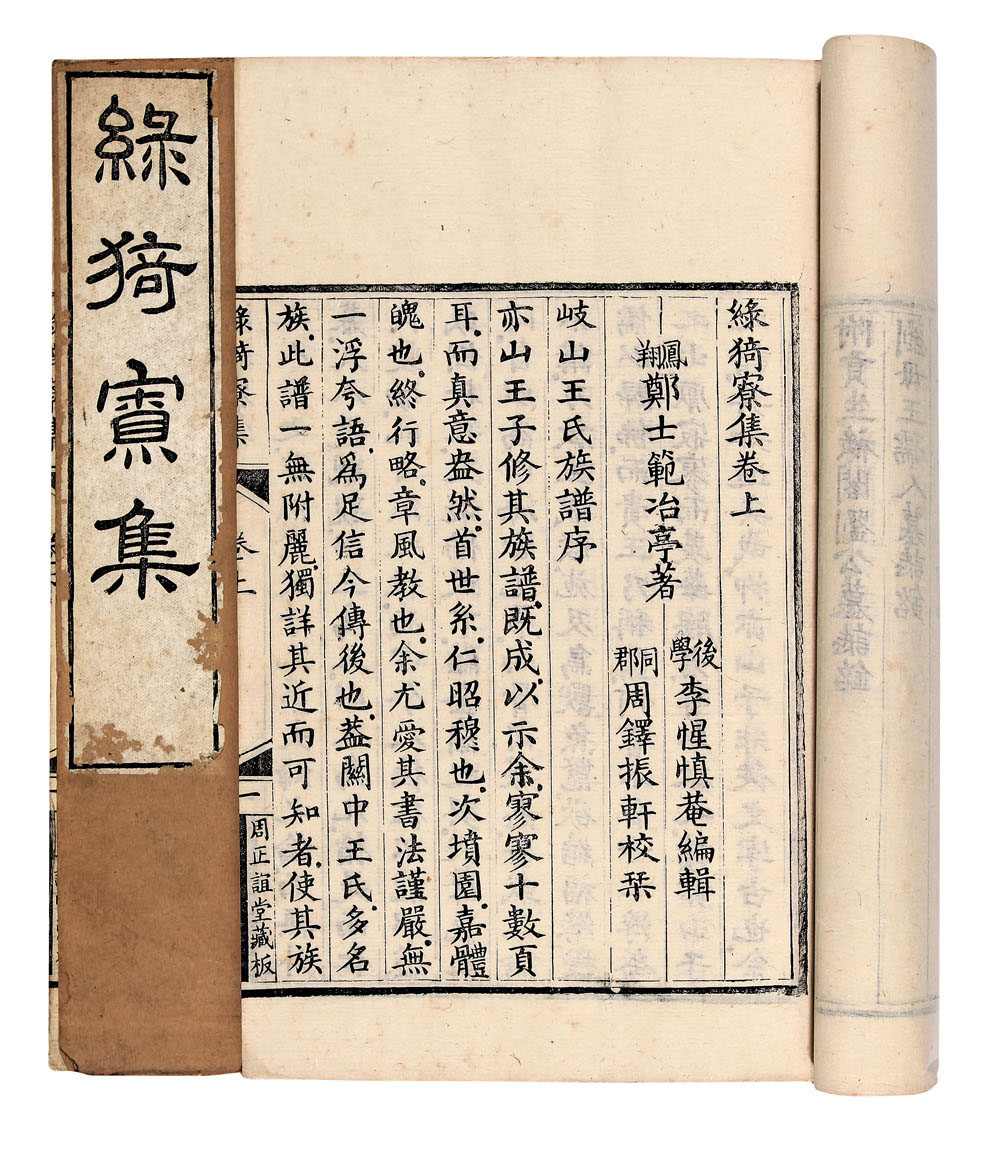 綠猗寮集
綠猗寮集卷上
鳳翔鄭士範冶亭著
後學李惺慎菴編輯
同郡周鐸振軒校栞
岐山王氏族譜序
亦山王子修其族譜.既成.以示余.寥寥十數頁
耳.而真意盎然.首世系.仁昭穆也.次墳園.嘉體
魄也.終行略.章風教也.余尤愛其書法謹嚴.無
一浮夸語.為足信今傳後也.葢關中王氏多名
族.此譜一無附麗.獨詳其近而可知者.使其族
綠猗寮集
卷上
一
周正誼堂藏板
附貢生